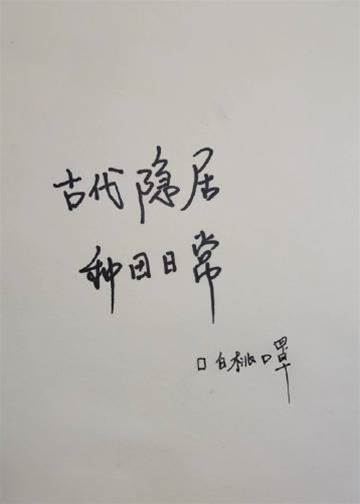 古代隐居
种田日常
口白桃罩